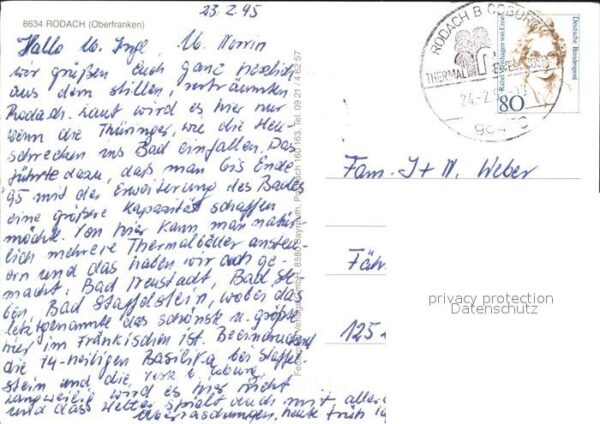 23.2.95
8634 RODACH (Oberfranken)
Hallo lb. Inge, lb. Norrin
wir grüßen Euch ganz herzlich
aus dem stillen, verträumten
Rodach. Laut wird es hier nur
wenn die Thüringer, wie die Heu-
schrecken ins Bad einfallen. Das
führte dazu, daß man bis Ende
95 mit der Erweiterung des Bades
eine größere Kapazität schaffen
möchte. Von hier kann man natür-
lich mehrere Thermalbäder ansteu-
ern und das haben wir auch ge-
macht: Bad Neustadt, Bad Ste-
ben, Bad Staffelstein, wobei das
letztgenannte das schönste u. größte
hier im Fränkischen ist. Beeindruckend
die 14-heiligen Basilika bei Staffel-
stein und die Coburg.
Langweilig wird es hier nicht
und das Wetter spielt auch mit aller
Überraschungen, heute früh
Bayreuth, Postfach 160 163, Tel. 09 21 / 4 62 57
RODACH B COBURG
THERMAL
24.-2.
80
Deutsche Bundespost
Rahel Varnhagen von Ense
Fam. J + N. Weber
Fähr
125
privacy protection
Datenschutz